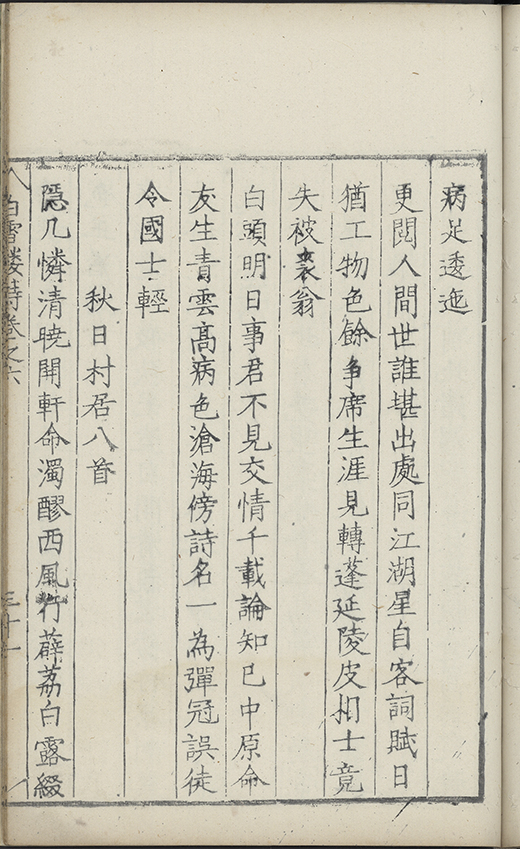 病足逶迤
更閱人間世誰堪出處同江湖星自客詞賦日
猶工物色餘爭席生涯見轉蓬延陵皮相士竟
失被裘翁
白頭明日事君不見交情千載論知已中原命
友生青雲高病色滄海傍詩名一為彈冠誤徒
令國士輕
秋日村居八首
隱几憐清曉開軒命濁醪西風行薜荔白露綴
白雪樓詩卷之六
三十一